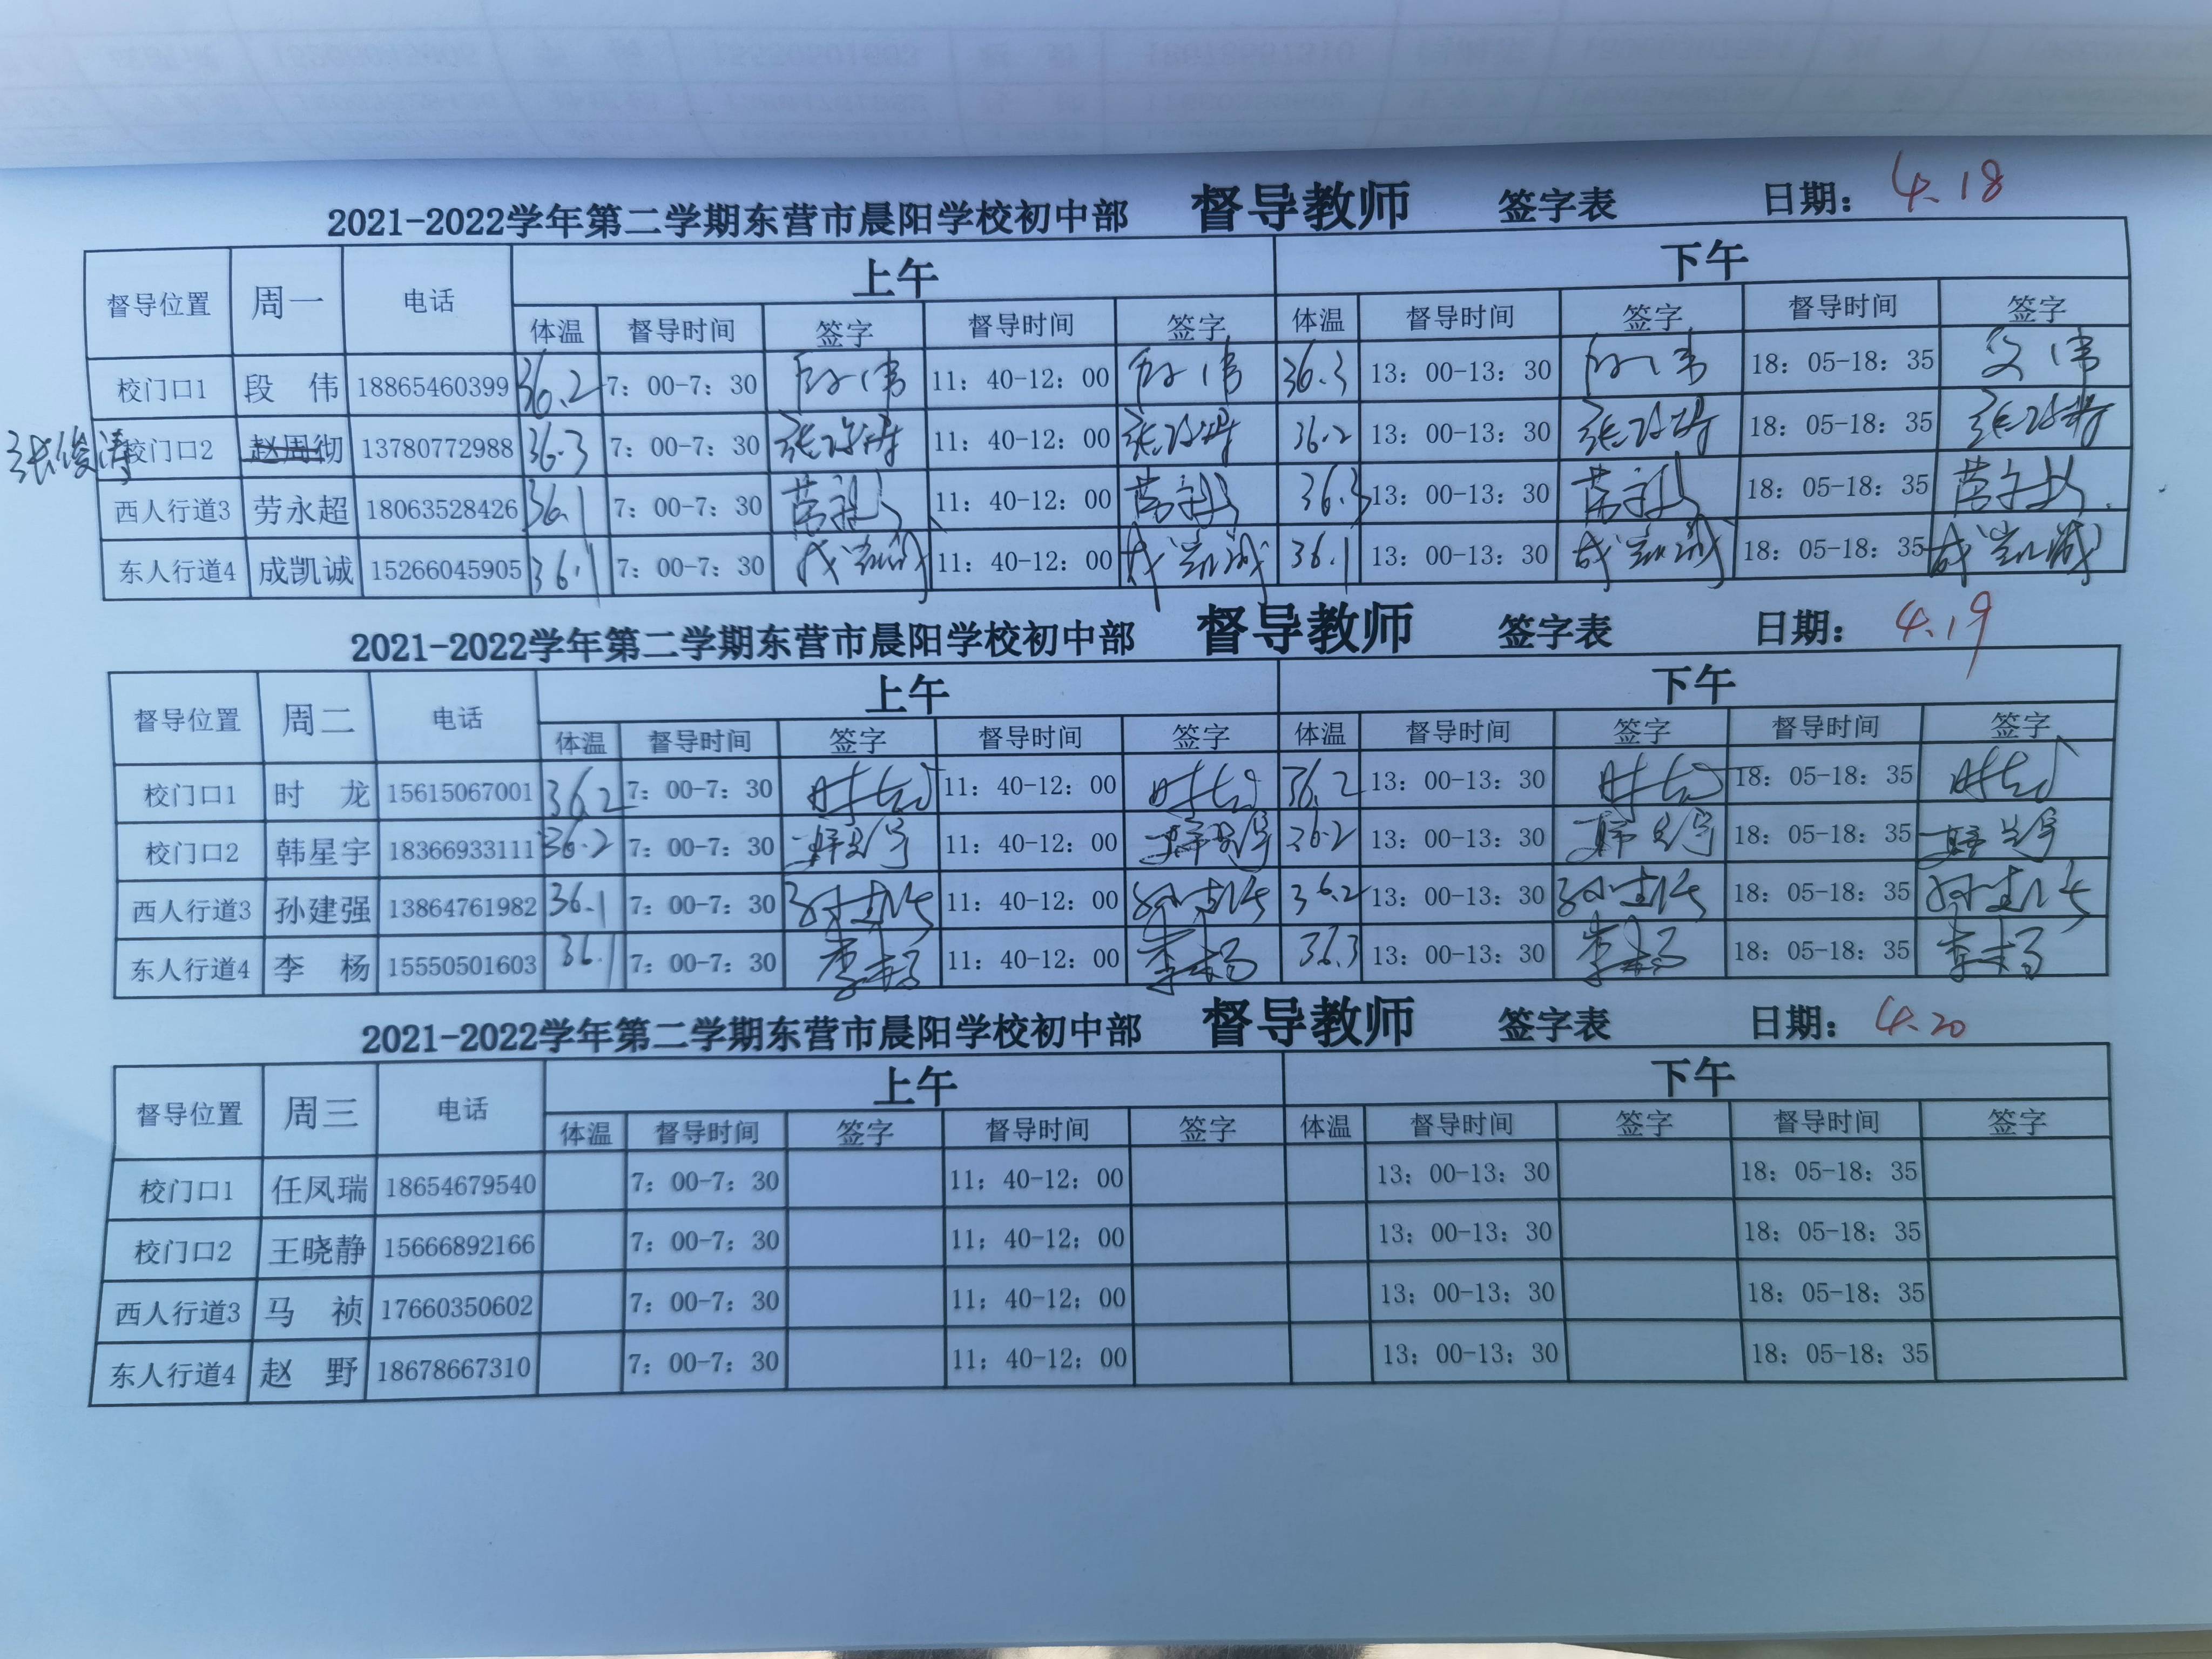 2021-2022学年第二学期东营市晨阳学校初中部 督导教师 签字表 日期： 4.18
督导位置 周一 电话 上午 下午
体温 督导时间 签字 督导时间 签字 体温 督导时间 签字 督导时间 签字
校门口1 段 伟 18865460399 36.2 7：00-7：30 段伟 11：40-12：00 段伟 36.3 13：00-13：30 段伟 18：05-18：35 段伟
张俊涛 校门口2 赵周彻 13780772988 36.3 7：00-7：30 张俊涛 11：40-12：00 张俊涛 36.2 13：00-13：30 张俊涛 18：05-18：35 张俊涛
西人行道3 劳永超 18063528426 36.1 7：00-7：30 劳永超 11：40-12：00 劳永超 36.3 13：00-13：30 劳永超 18：05-18：35 劳永超
东人行道4 成凯诚 15266045905 36.1 7：00-7：30 成凯诚 11：40-12：00 成凯诚 36.1 13：00-13：30 成凯诚 18：05-18：35 成凯诚
2021-2022学年第二学期东营市晨阳学校初中部 督导教师 签字表 日期： 4.19
督导位置 周二 电话 上午 下午
体温 督导时间 签字 督导时间 签字 体温 督导时间 签字 督导时间 签字
校门口1 时 龙 15615067001 36.2 7：00-7：30 时龙 11：40-12：00 时龙 36.2 13：00-13：30 时龙 18：05-18：35 时龙
校门口2 韩星宇 18366933111 36.2 7：00-7：30 韩星宇 11：40-12：00 韩星宇 36.2 13：00-13：30 韩星宇 18：05-18：35 韩星宇
西人行道3 孙建强 13864761982 36.1 7：00-7：30 孙建强 11：40-12：00 孙建强 36.2 13：00-13：30 孙建强 18：05-18：35 孙建强
东人行道4 李 杨 15550501603 36.1 7：00-7：30 李杨 11：40-12：00 李杨 36.3 13：00-13：30 李杨 18：05-18：35 李杨
2021-2022学年第二学期东营市晨阳学校初中部 督导教师 签字表 日期： 4.20
督导位置 周三 电话 上午 下午
体温 督导时间 签字 督导时间 签字 体温 督导时间 签字 督导时间 签字
校门口1 任凤瑞 18654679540 7：00-7：30 11：40-12：00 13：00-13：30 18：05-18：35
校门口2 王晓静 15666892166 7：00-7：30 11：40-12：00 13：00-13：30 18：05-18：35
西人行道3 马 祯 17660350602 7：00-7：30 11：40-12：00 13：00-13：30 18：05-18：35
东人行道4 赵 野 18678667310 7：00-7：30 11：40-12：00 13：00-13：30 18：05-18：35